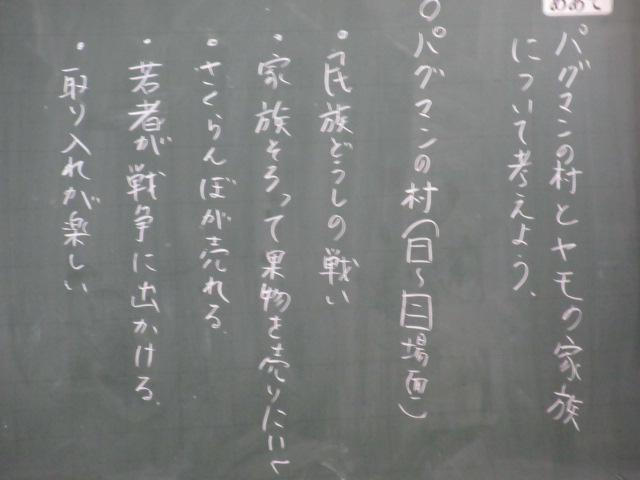 めあて
パグマンの村とヤモの家族
について考えよう。
○パグマンの村(一~二場面)
・民族どうしの戦い
・家族そろって果物を売りにいく
・さくらんぼが売れる
・若者が戦争に出かける
・取り入れが楽しい